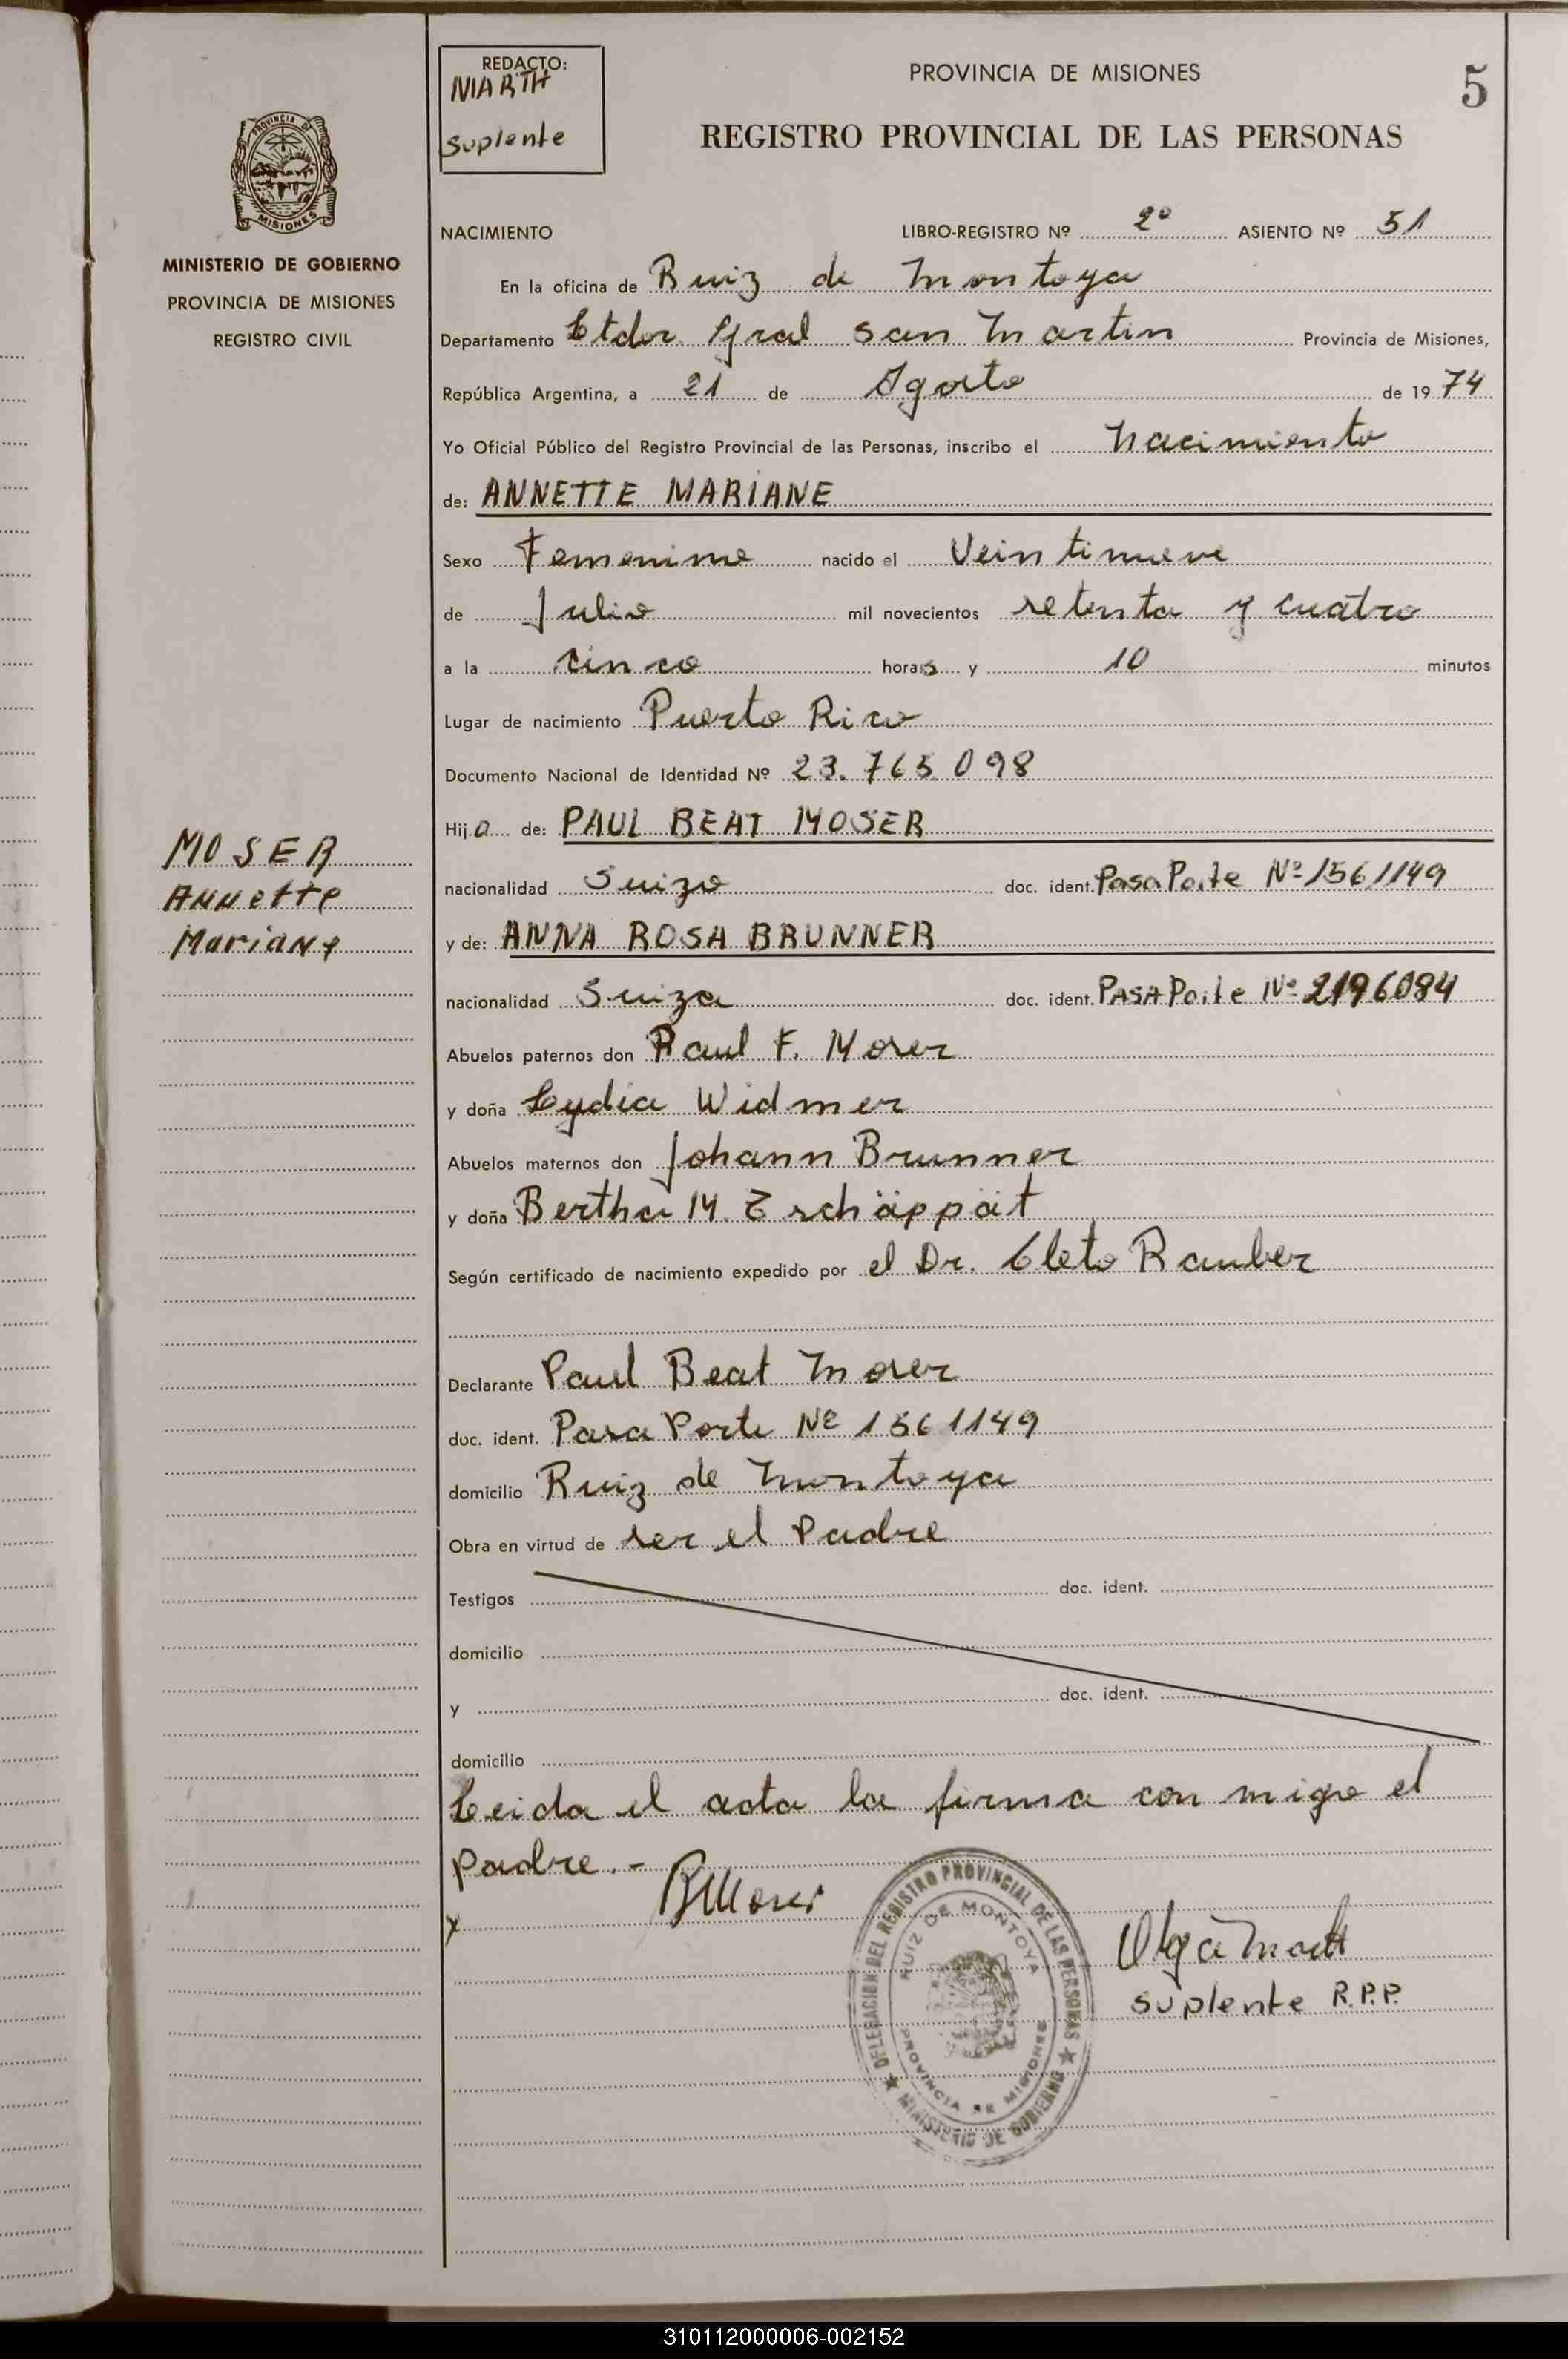 REDACTO:
MARTH
Suplente
PROVINCIA DE MISIONES
5
REGISTRO PROVINCIAL DE LAS PERSONAS
PROVINCIA
MISIONES
MINISTERIO DE GOBIERNO
PROVINCIA DE MISIONES
REGISTRO CIVIL
NACIMIENTO LIBRO-REGISTRO Nº 2º ASIENTO Nº 51
En la oficina de Ruiz de Montoya
Departamento Ltdor Gral San Martin Provincia de Misiones,
República Argentina, a 21 de Agosto de 19 74
Yo Oficial Público del Registro Provincial de las Personas, inscribo el Nacimiento
de: ANNETTE MARIANE
Sexo Femenino nacido el Veintinueve
de Julio mil novecientos setenta y cuatro
a la cinco horas y 10 minutos
Lugar de nacimiento Puerto Rico
Documento Nacional de Identidad Nº 23.765.098
Hij a de: PAUL BEAT MOSER
MOSER
Annette
Mariane
nacionalidad Suizo doc. ident. PasaPorte Nº 1561149
y de: ANNA ROSA BRUNNER
nacionalidad Suiza doc. ident. PASAPorte Nº 2196084
Abuelos paternos don Paul F. Moser
y doña Lydia Widmer
Abuelos maternos don Johann Brunner
y doña Bertha M. Eschäppät
Según certificado de nacimiento expedido por el Dr. Cleto Rauber
Declarante Paul Beat Moser
doc. ident. PasaPorte Nº 1561149
domicilio Ruiz de Montoya
Obra en virtud de ser el Padre
Testigos doc. ident.
domicilio
y doc. ident.
domicilio
Leida el acta la firma con migo el
Padre.-
x BMoser
Olga Marth
suplente R.P.P.
DELEGACION DEL REGISTRO PROVINCIAL DE LAS PERSONAS
RUIZ DE MONTOYA
PROVINCIA DE MISIONES
MINISTERIO DE GOBIERNO
310112000006-002152